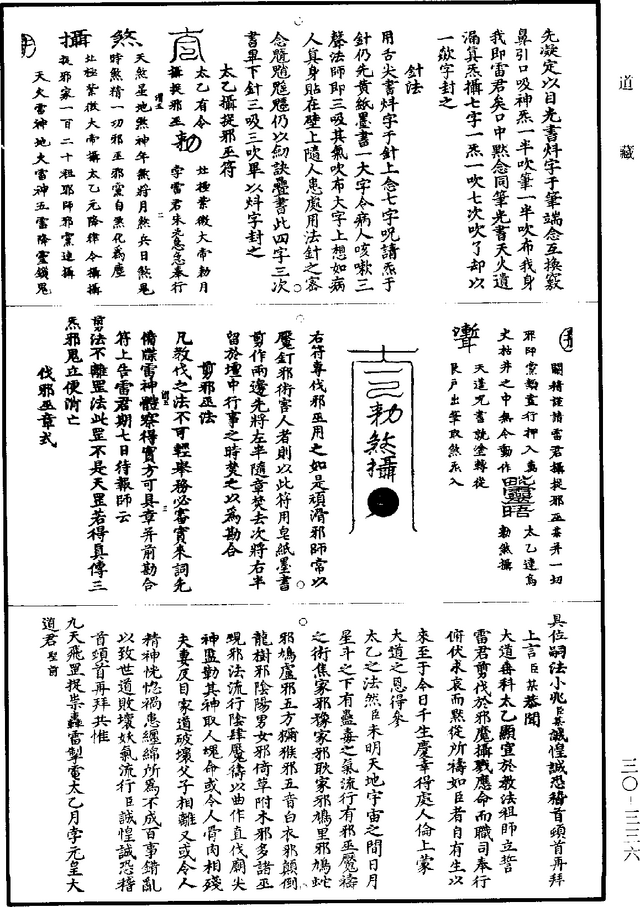 道藏
先凝定以目光書炓字于筆端念互換竅
鼻引口吸神炁一半吹筆一半吹布我身
我即雷君矣口中黙念同筆光書天火遺
漏算炁攝七字一炁一吹七次吹了却以
一炊字封之
針法
用舌尖書炓字于針上念七字呪請炁于
針仍先黄紙墨書一大字令病人咳嗽三
聲法師即三吸其氣吹布大字上想如病
人真身貼在壁上隨人患處用法針之密
書單下針三吸三吹畢以炓字封之
太乙攝捉邪巫符
太乙有令
北極紫微大帝勑月
攝捉邪巫
孛雷君朱光急急奉行
勑
煞
天煞星地煞神年煞將月煞兵日煞鬼
時煞精一切邪巫邪靈自煞化爲塵
攝
北極紫微大帝攝太乙元降律令攝攝
捉邪家一百二十祖邪師邪黨速攝
天火雷神地火雷神五雷降靈錢鬼
關精謹請雷君攝捉邪巫某并一切
邪師黨類蓋行押入萬
丈枯井之中無令動作
太乙達烏
勑煞攝
天道咒書就塗轉從
艮戸出筆取煞炁入
勑煞攝
右符專伐邪巫用之如是頑滑邪師常以
魘釘邪術害人者則以此符用皂紙墨書
剪作兩邊先將左半隨章焚去次將右半
留於壇中行事之時焚之以爲勘合
剪邪巫法
凡教伐之法不可輕舉務必審實來詞先
備牒雷神體察得實方可具章并前勘合
符上告雷君期七日待報師云
剪法不離罡法此罡不是天罡若得真傳三
炁邪鬼立便消亡
伐邪巫章式
具位嗣法小兆臣某誠惶誠恐稽首頓首再拜
上言臣某恭聞
大道垂科太乙顯宣於教法祖師立誓
雷君剪伐於邪魔攝戮應命而職司奉行
俯伏求哀而黙從所禱如臣者自有生以
來至于今日千生慶幸得處人倫上蒙
大道之恩得參
太乙之法然臣未明天地宇宙之間日月
星斗之下有蠱毒之氣流行有邪巫魘禱
之術焦家邪豫家邪耿家邪鳩里邪鳩蛇
邪鳩廬邪五方獼猴邪五音白衣邪顛倒
龍樹邪陰陽男女邪倚草附木邪多諸巫
覡邪法流行陰肆魘禱以曲作直伐廟尖
神監勒其神取人塊命或令人骨肉相殘
夫妻反目家道破壞父子相離又或令人
精神恍惚禍患纏綿所爲不成百事錯亂
以致世道敗壞妖氣流行臣誠惶誠恐稽
首頓首再拜共惟
九天飛罡捉祟轟雷掣電太乙月孛元皇大
道君聖前
三〇-三三六